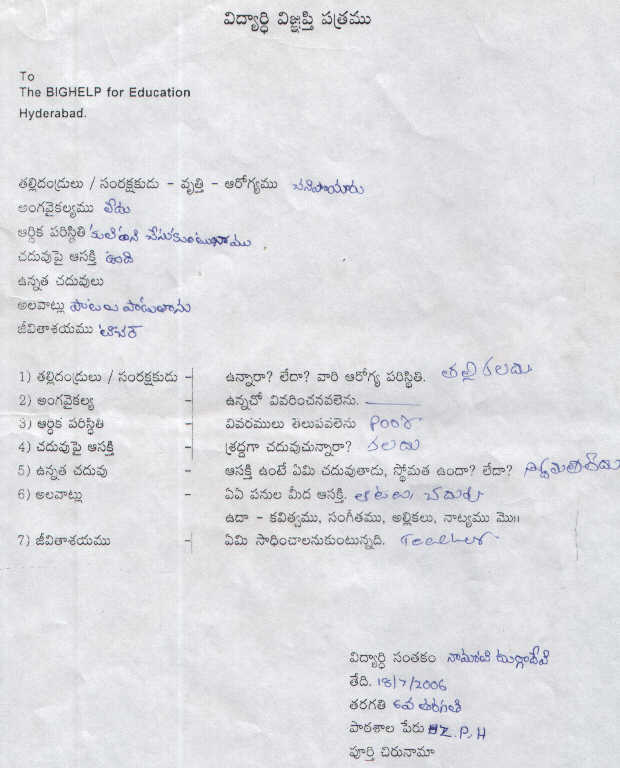 విద్యార్ధి విజ్ఞప్తి పత్రము
To
The BIGHELP for Education
Hyderabad.
తల్లిదండ్రులు / సంరక్షకుడు - వృత్తి - ఆరోగ్యము చనిపోయారు
అంగవైకల్యము లేదు
ఆర్ధిక పరిస్థితి కూలిపని చేసుకుంటున్నాము
చదువుపై ఆసక్తి ఉంది
ఉన్నత చదువులు
అలవాట్లు పాటలు పాడుతాను
జీవితాశయము టీచర్
1) తల్లిదండ్రులు / సంరక్షకుడు - ఉన్నారా? లేదా? వారి ఆరోగ్య పరిస్థితి. తల్లి కలదు
2) అంగవైకల్య - ఉన్నచో వివరించనవలెను.
3) ఆర్ధిక పరిస్థితి - వివరములు తెలుపవలెను Poor
4) చదువుపై ఆసక్తి - శ్రద్దగా చదువుచున్నారా? కలదు
5) ఉన్నత చదువు - ఆసక్తి ఉంటే ఏమి చదువుతాడు, స్థోమత ఉందా? లేదా?
6) అలవాట్లు - ఏఏ పనుల మీద ఆసక్తి. ఆటలు, చదువు
ఉదా - కవిత్వము, సంగీతము, అల్లికలు, నాట్యము మొ॥
7) జీవితాశయము - ఏమి సాధించాలనుకుంటున్నది. Teacher
విద్యార్ధి సంతకం దుర్గాదేవి
తేది. 18/7/2006
తరగతి 6వ తరగతి
పాఠశాల పేరు Z.P.H
పూర్తి చిరునామా